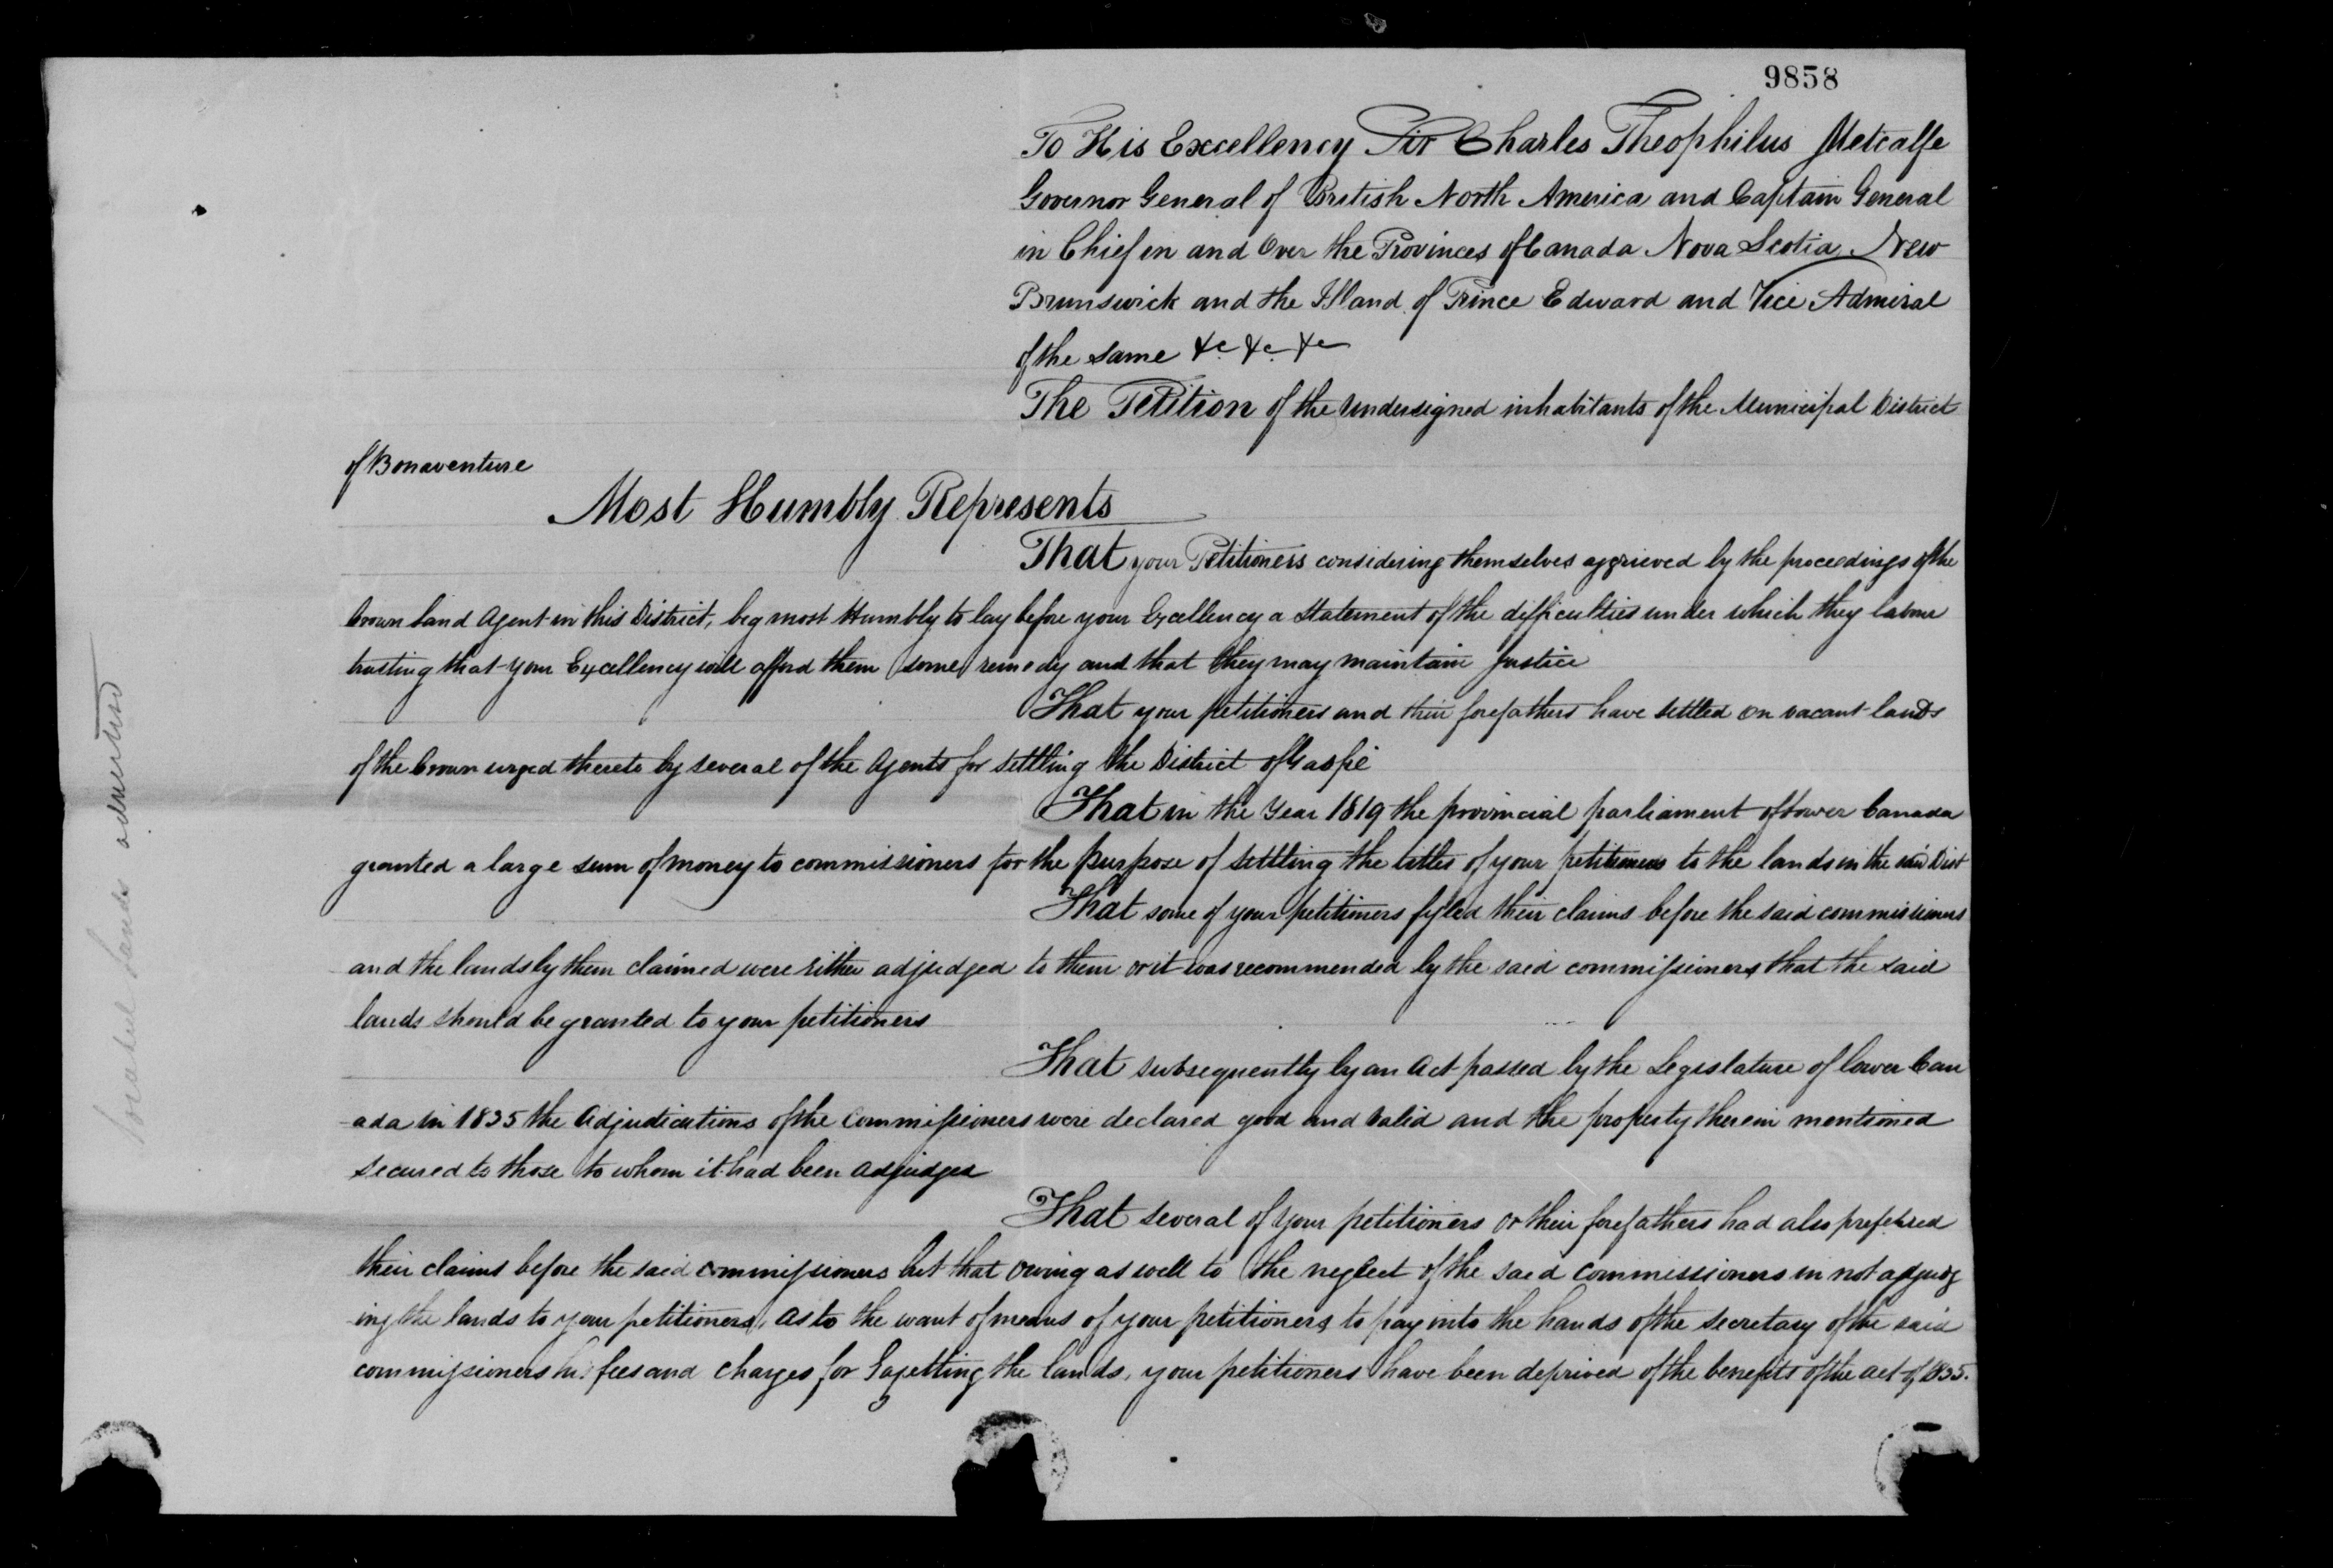 9858
To His Excellency Sir Charles Theophilus Metcalfe
Governor General of British North America and Captain General
in Chief in and Over the Provinces of Canada Nova Scotia, New
Brunswick and the Island of Prince Edward and Vice Admiral
of the same &c &c &c
The Petition of the Undersigned inhabitants of the Municipal District
of Bonaventure
Most Humbly Represents
That your Petitioners considering themselves aggrieved by the proceedings of the
Crown land Agent in this District, beg most Humbly to lay before your Excellency a Statement of the difficulties under which they labour
trusting that your Excellency will afford them some remedy and that they may maintain Justice
That your petitioners and their forefathers have settled on vacant lands
of the Crown urged thereto by several of the Agents for settling the District of Gaspé
That in the Year 1819 the provincial parliament of Lower Canada
granted a large sum of money to commissioners for the purpose of settling the titles of your petitioners to the lands in the said Dist
That some of your petitioners fyled their claims before the said commissioners
and the lands by them claimed were either adjudged to them or it was recommended by the said commissioners that the said
lands should be granted to your petitioners
That subsequently by an Act passed by the Legislature of lower Can
-ada in 1835 the Adjudications of the Commissioners were declared good and valid and the property therein mentioned
secured to those to whom it had been adjudged
That several of your petitioners or their forefathers had also preferred
their claims before the said commissioners but that owing as well to the neglect of the said commissioners in not adjudg
ing the lands to your petitioners, as to the want of means of your petitioners to pay into the hands of the secretary of the said
commissioners his fees and charges for Gazetting the lands, your petitioners have been deprived of the benefits of the act of 1835.